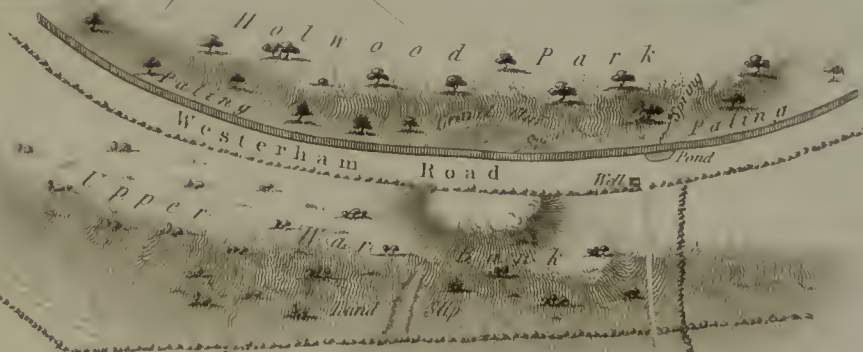 Holwood Park
Paling
Spring
Paling
Westerham Road
Pond
Well
Upper War Bank
Land Slip